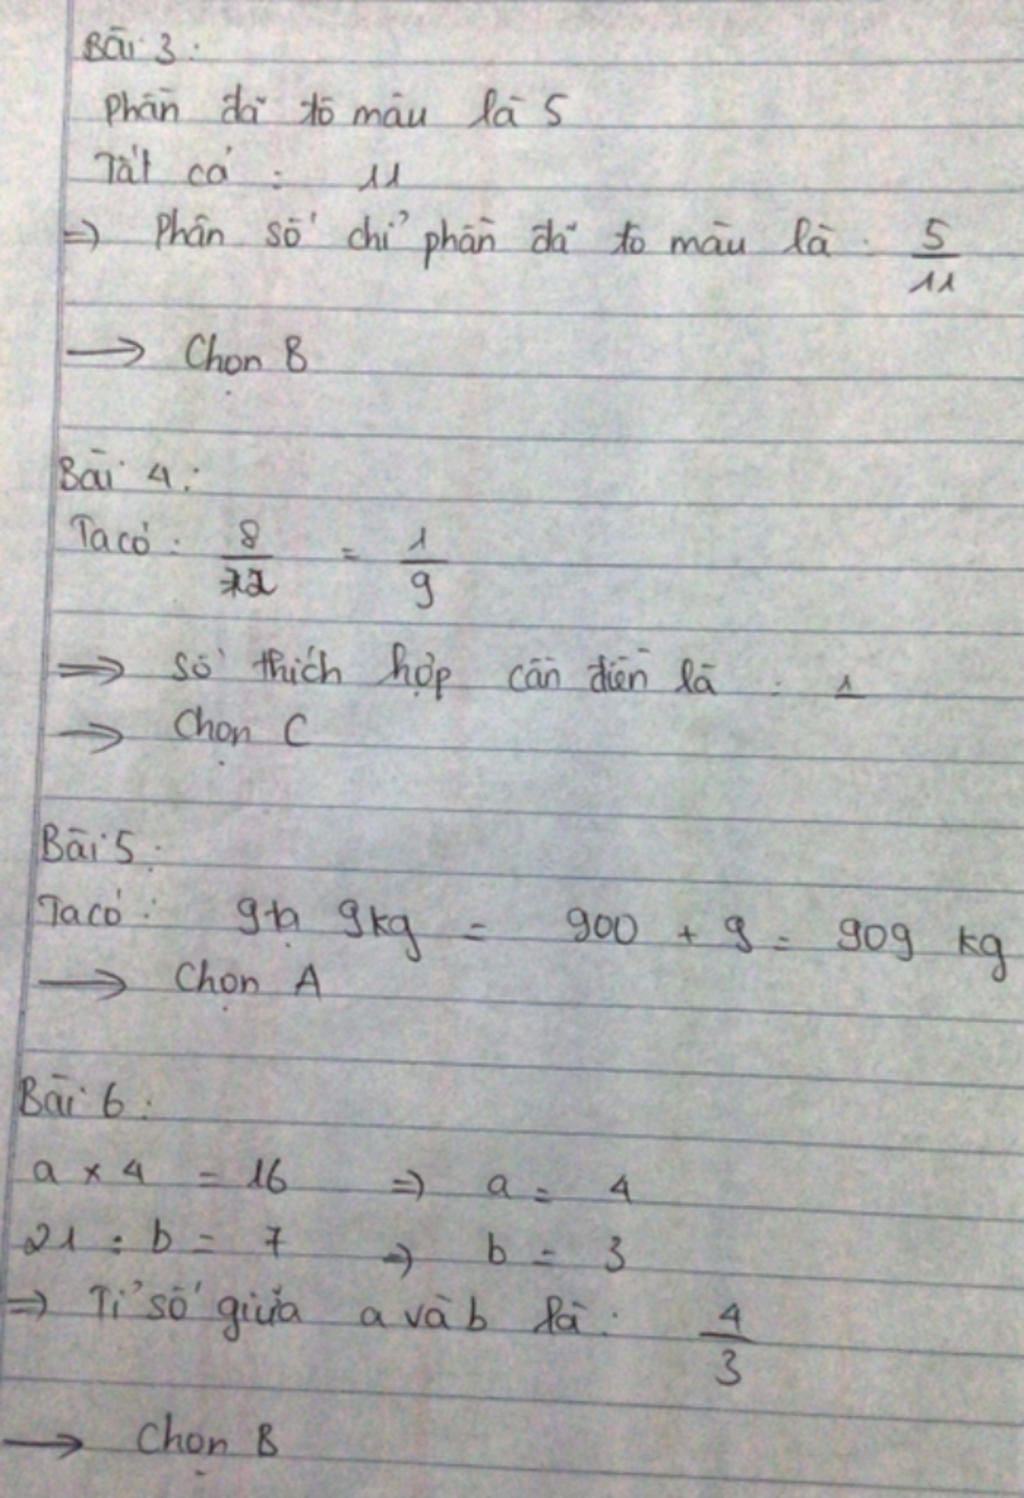 Bài 3:
Phần đã tô màu là 5
Tất cả : 11
=> Phân số chỉ phần đã tô màu là : 5/11
→ Chọn B
Bài 4:
Ta có : 8/72 = 1/9
=> Số thích hợp cần điền là : 1
→ Chọn C
Bài 5:
Ta có : 9 tạ 9 kg = 900 + 9 = 909 kg
→ Chọn A
Bài 6:
a × 4 = 16 => a = 4
21 : b = 7 => b = 3
=> Tỉ số giữa a và b là : 4/3
→ Chọn B